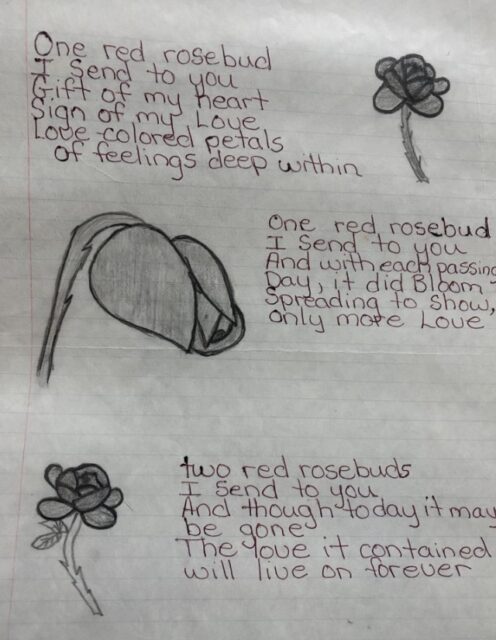 One red rosebud
I Send to you
Gift of my heart
Sign of my Love
Love-colored petals
of feelings deep within
One red rosebud
I Send to you
And with each passing
Day, it did Bloom -
Spreading to show,
only more Love
two red rosebuds
I Send to you
And though today it may
be gone
The love it contained
will live on forever